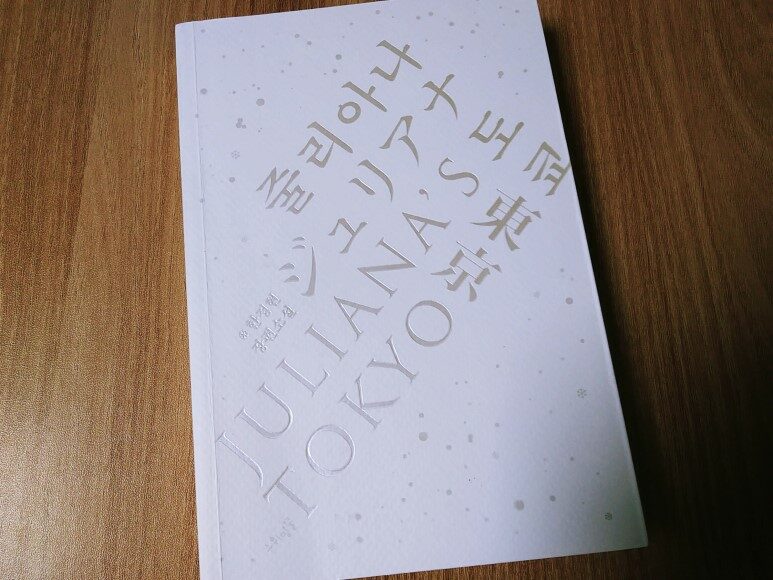 줄리아나 도쿄
ジュリアナ 東京
JULIANA'S
TOKYO
한정현
장편소설
스위밍꿀